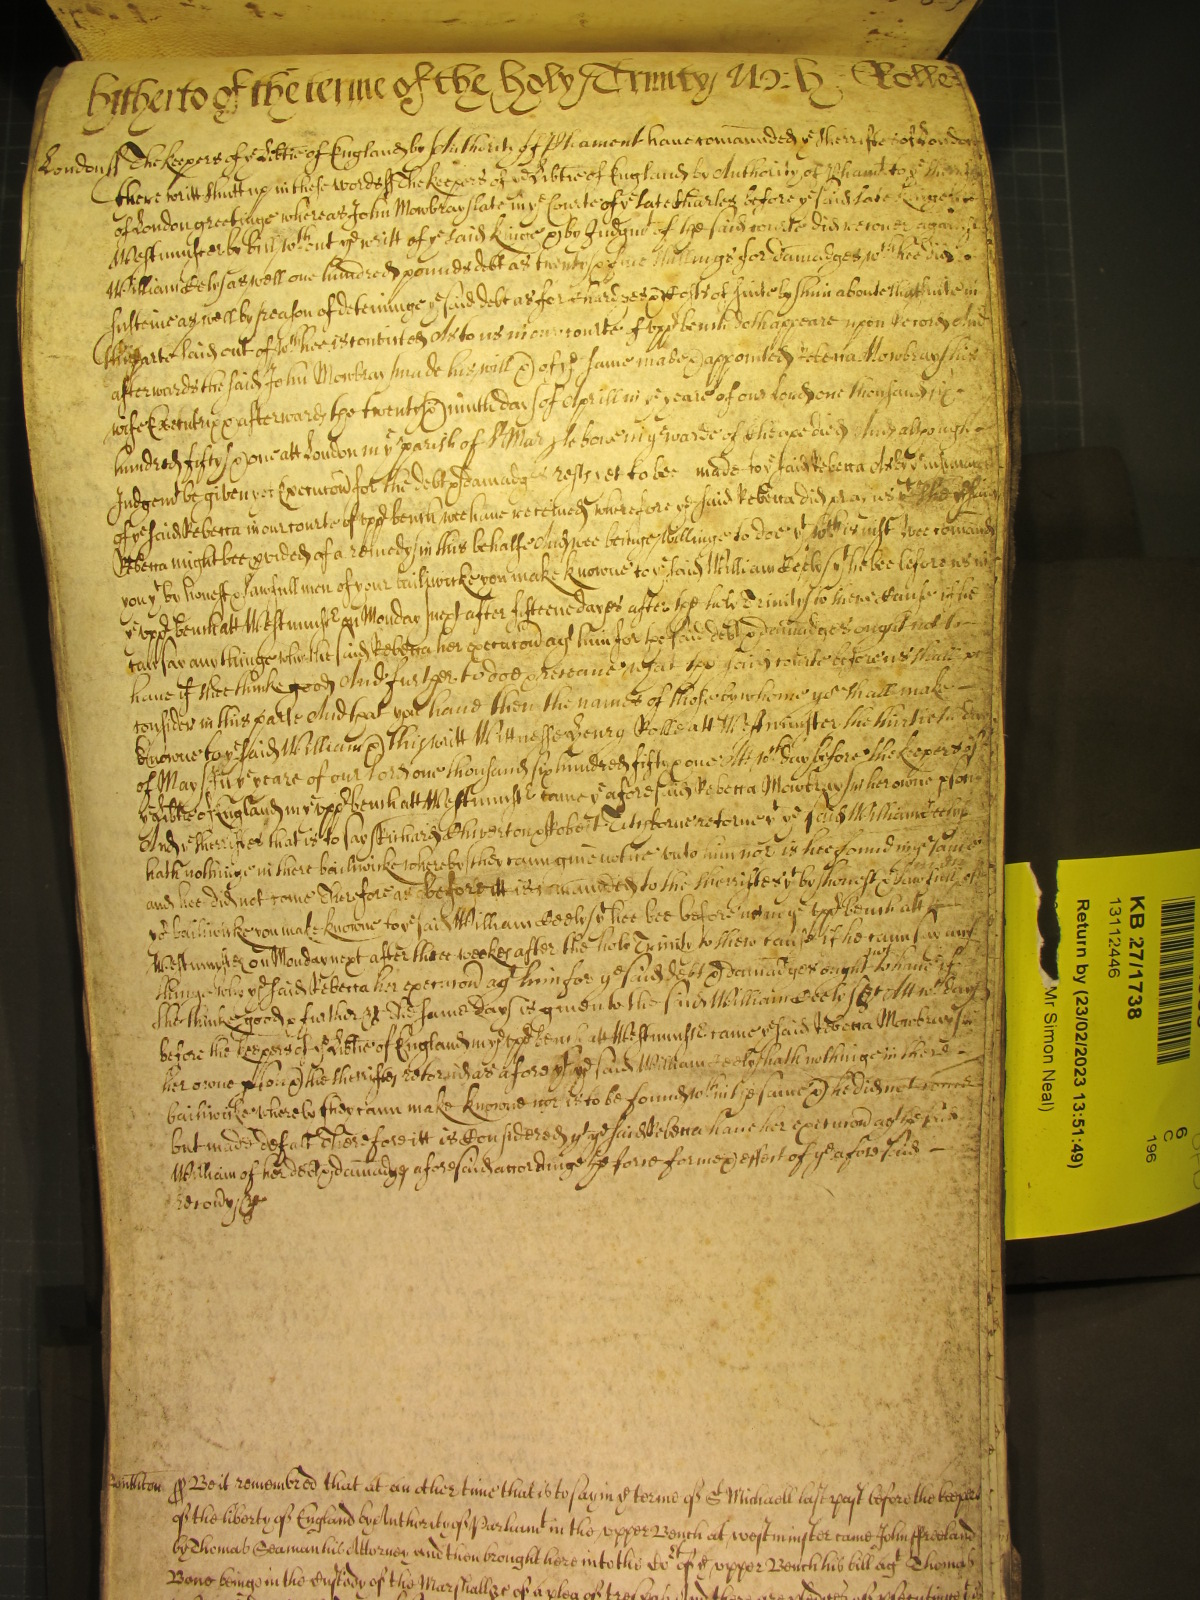 hitherto of the terme of the holy Trinity W: h: Rolle
London ss The keepers of ye Libtie of England by Authority of Pliament have comannded ye Sherriffes of London
there writt shutt up in these words ss The keepers of ye Libtie of England by Authority of Pliamt to ye Sherriffes
of London greetinge whereas John Mowbray late in ye Courte of ye late Charles before ye said late Kinge att
Westminster by bill wthout ye writt of ye said Kinge & by Judgmt of the said courte did recover against
William Keely as well one hundred pounds debt as twenty & five shillings for damadges wch hee did
susteine as well by reason of deteininge ye said debt as for Chardges & Costs of suite by him aboute that suite in
this parte laid out of wch hee is convicted As to us in our courte of upp bench doth appeare upon record And
afterwards the said John Mowbray made his will & of ye same made & appointed Rebecca Mowbray his
wife Executrix & afterwards the twenty & ninth day of Aprill in ye yeare of our Lord one thousand six
hundred fifty & one att London in ye parish of St Mary le bone in ye warde of Cheape died And although
Judgemt be given yet Execucon for the debt & damadges rests yet to bee made to ye said Rebecca As by ye
of ye said Rebecca in our courte of upp bench wee have received wherefore ye said Rebecca did pray us
Rebecca might bee pvided of a remedy in this behalfe And wee beinge willinge to doe yt wch is just Wee comand
you yt by honest & lawfull men of your bailiwicke you make knowne to ye said William Keely yt he bee before us in
ye upp bench att Westminstr on Monday next after fifteene dayes after the holy Trinity to shew cause if he
cann say any thinge why the said Rebecca her execucon agt him for the said debt & damadges ought not to
have if shee thinke good And further to doe & receave what the said courte before us shall
consider in this parte And that you have then the names of those by whome ye shall make
knowne to ye said William & this writt Wittnesse Henry Rolle att Westminster the thirtieth day
of May in ye yeare of our Lord one thousand six hundred fifty & one Att wch day before the keepers of
ye Libtie of England in ye upp bench att Westminstr came ye aforesaid Rebecca Mowbray in her owne pson
And ye sherriffes that is to say Richard Chiverton & Robert Titchborne retorne yt ye said William Keely
hath nothinge in there bailiwicke whereby they cann give notice unto him nor is hee found in ye same
and hee did not come Therefore as before itt is comannded to the sherriffes yt by honest & lawfull
ye bailiwicke you make knowne to ye said William Keely yt hee bee before us in ye upp bench att
Westminster on Monday next after three weekes after the holy Trinity to shew cause if he cann say any
thinge why ye said Rebecca her execucon agt him for ye said debt & damadges ought not to have if
shee thinke good & further &c the same day is given to the said William Keely &c Att wch day
before the keepers of ye Libtie of England in ye upp bench att Westminstr came ye said Rebecca Mowbray in
her owne pson & the sherriffes retorned as afore yt ye said William Keely hath nothinge in there
bailiwicke whereby they cann make knowne nor is to be found wthin the same & he did not come
but made defalt Therefore itt is considered yt ye said Rebecca have her execucon agt the said
William of her debt & damadges aforesaid accordinge the force forme & effect of ye aforesaid
recovry &c
Southton ss Be it remembred that at an other time that is to say in ye terme of St Michaell last past before the keepers
of the liberty of England by Authority of Parliamt in the upper Bench at westminster came John ffreeland
by Thomas Seaman his Attorney and then brought here into the Co't of ye upper Bench his bill agt Thomas
Bone beinge in the custody of the Marshall &c of a plea of trespas And there are pledges of psecutinge to
KB 27/1738
13112446
Return by (23/02/2023 13:51:49)
Mr Simon Neal)
6
C
196